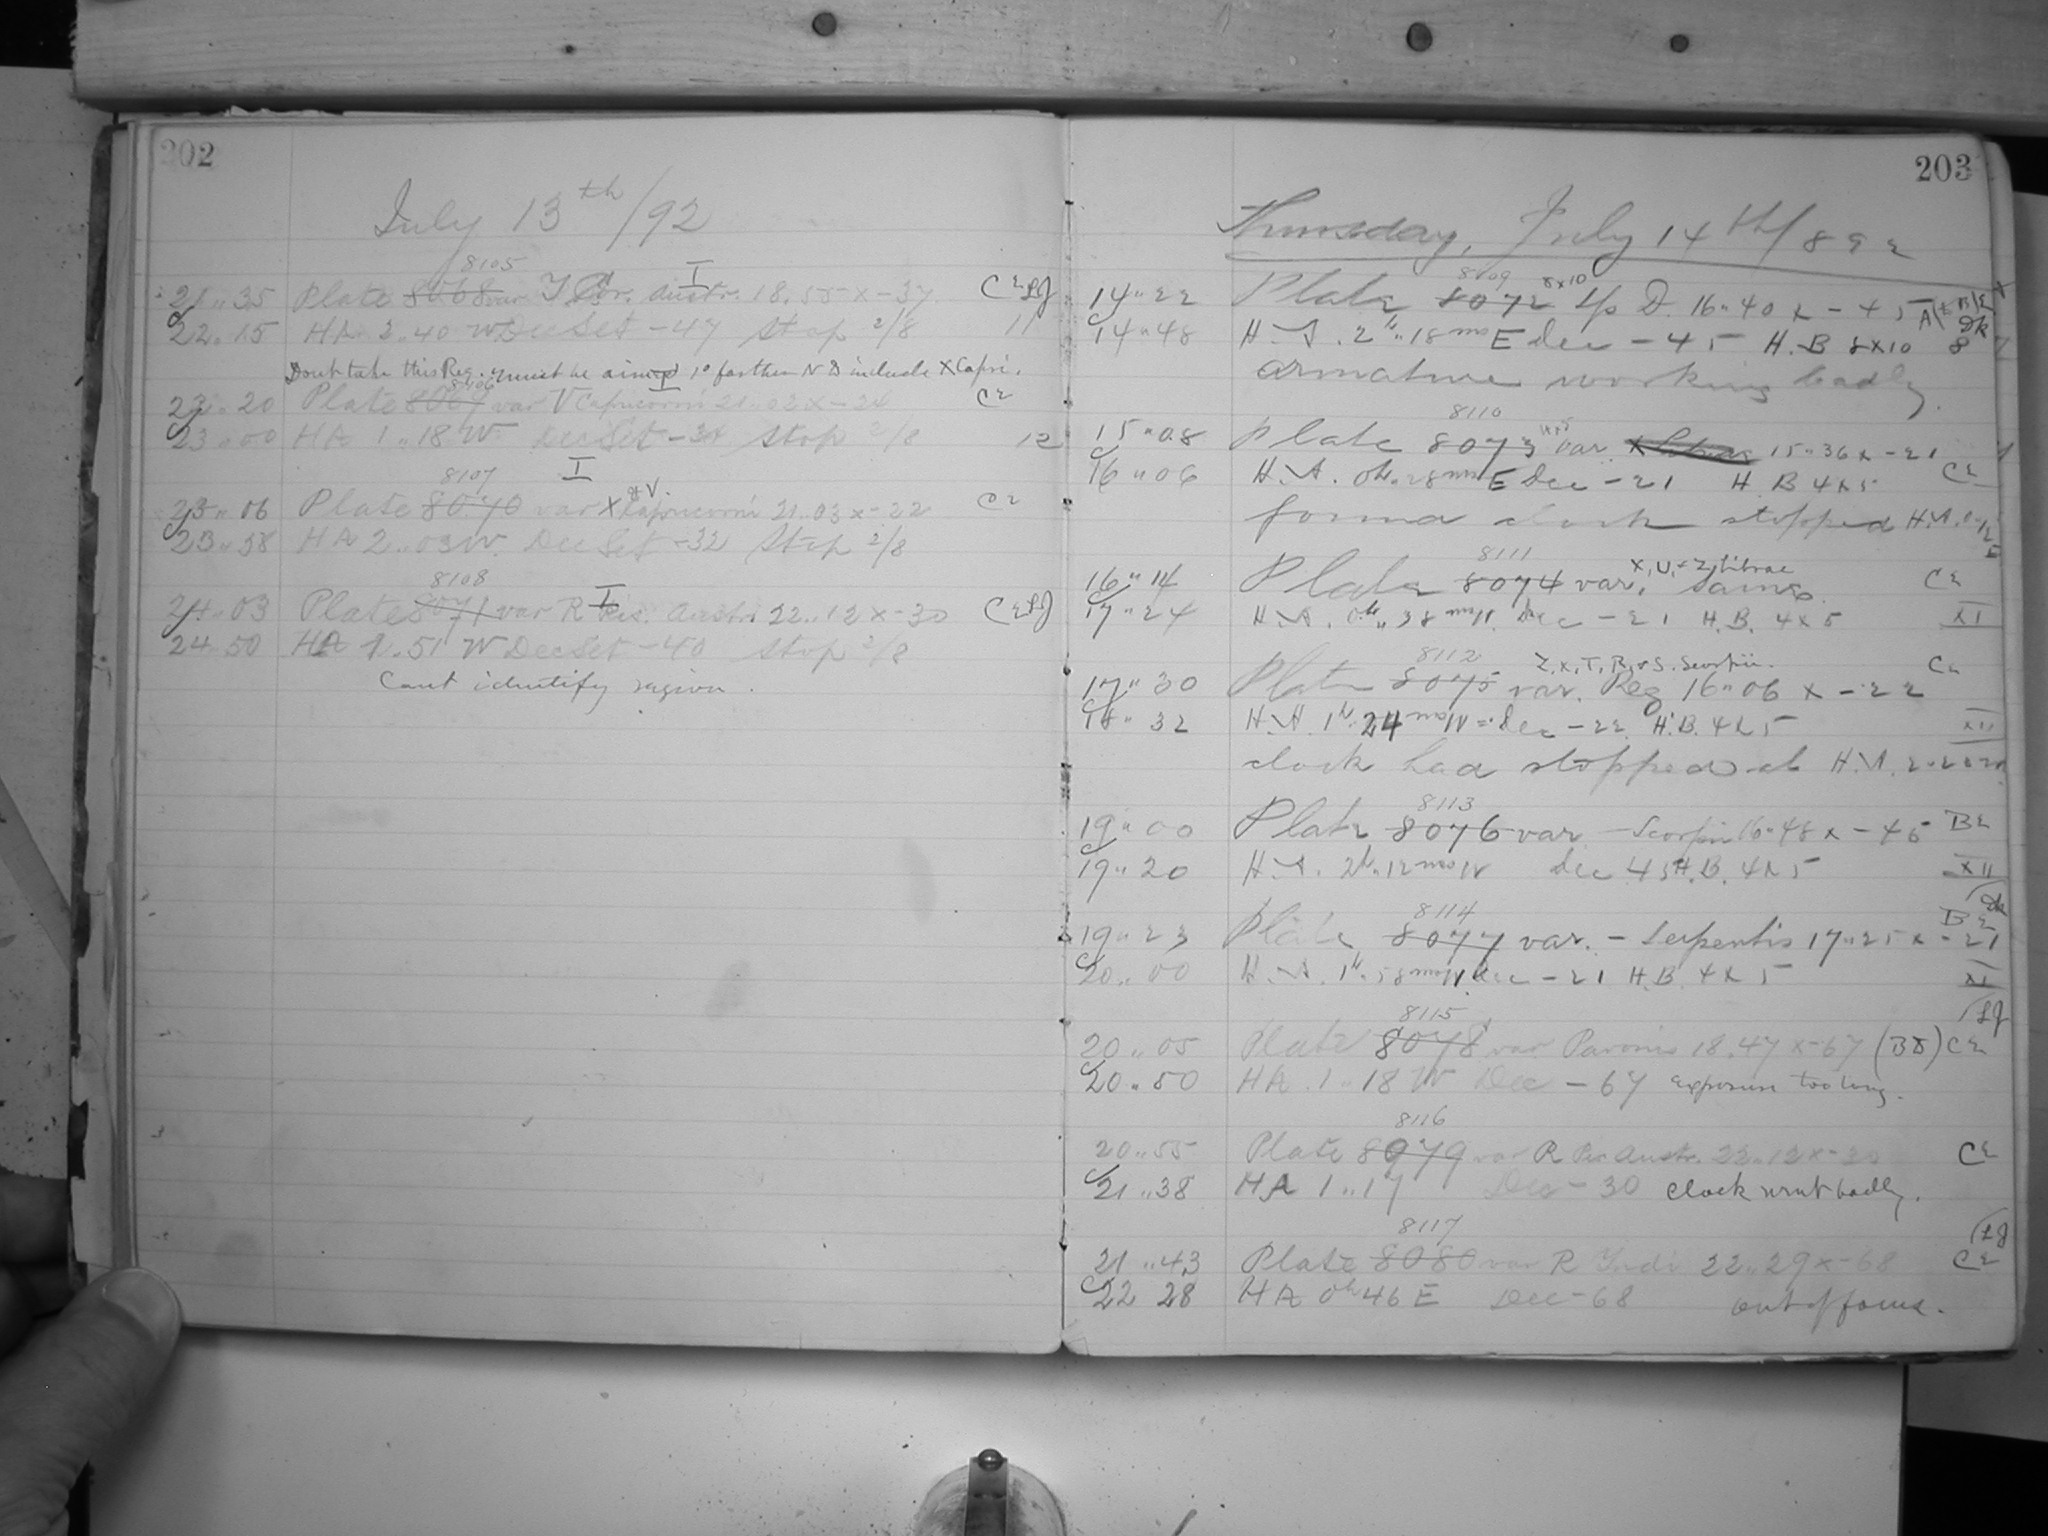 202
July 13th/92
8105 I
21..35 Plate 8068 var T Cor. Austr. 18.55 x -37 CE LJ
22..15 HA 2.40 W Dec Set -47 Stop 2/8 11
Dont take this Reg. must be aimed 1° farther N to include X Capri.
8106 I
23..20 Plate 8069 var V Capricorni 21..02 x -24 CE
23..00 HA 1..18 W Dec Set -34 Stop 2/8 12
8107 I
& V.
23..06 Plate 8070 var X Capricorni 21.03 x -22 CE
23..58 HA 2..03 W. Dec Set -32 Stop 2/8
8108 I
24..03 Plate 8071 var R Pis. Austr. 22..12 x -30 CE LJ
24.50 HA 1..51 W Dec Set -40 Stop 2/8
Cant identify region.
203
Thursday, July 14th/892
8109 8x10
14..22 Plate 8072 Sp D. 16..40 x -45
14..48 H.A. 2h..18m E Dec -45 H.B 8x10 8
armature working badly.
8110 4x5
15..08 Plate 8073 var. 15..36 x -21
16..06 H.A. 0h..28m E Dec -21 H.B 4x5 CE
found clock stopped H.A. 0-12 E
8111 X, U, + Z, Librae
16..14 Plate 8074 var. Same. CE
17..24 H.A. 0h..38m W. Dec -21 H.B. 4x5 XI
8112 Z, X, T, R, & S. Scorpii. CE
17..30 Plate 8075 var. Reg 16..06 x -22
18..32 H.A. 1h..24m W Dec -22 H.B. 4x5 XII
clock had stopped at H.A.
8113
19..00 Plate 8076 var - Scorpii 16..48 x -45 BE
19..20 H.A. 2h..12m W Dec 45 H.B. 4x5 XII
8114 BE
19..23 Plate 8077 var. - Serpentis 17..25 x -21
20..00 H.A. 1h..58m W. Dec -21 H.B. 4x5 XI
8115 LJ
20..05 Plate 8078 var Pavonis 18.47 x -67 (BD) CE
20..50 HA. 1..18 W Dec -67 exposure too long.
8116
20..55 Plate 8079 var R Pis Austr. 22..12 x -30 CE
21..38 HA 1..17 Dec -30 Clock went badly.
8117 LJ
21..43 Plate 8080 var R Indi 22..29 x -68 CE
22 28 HA 0h 46 E Dec -68 out of focus.